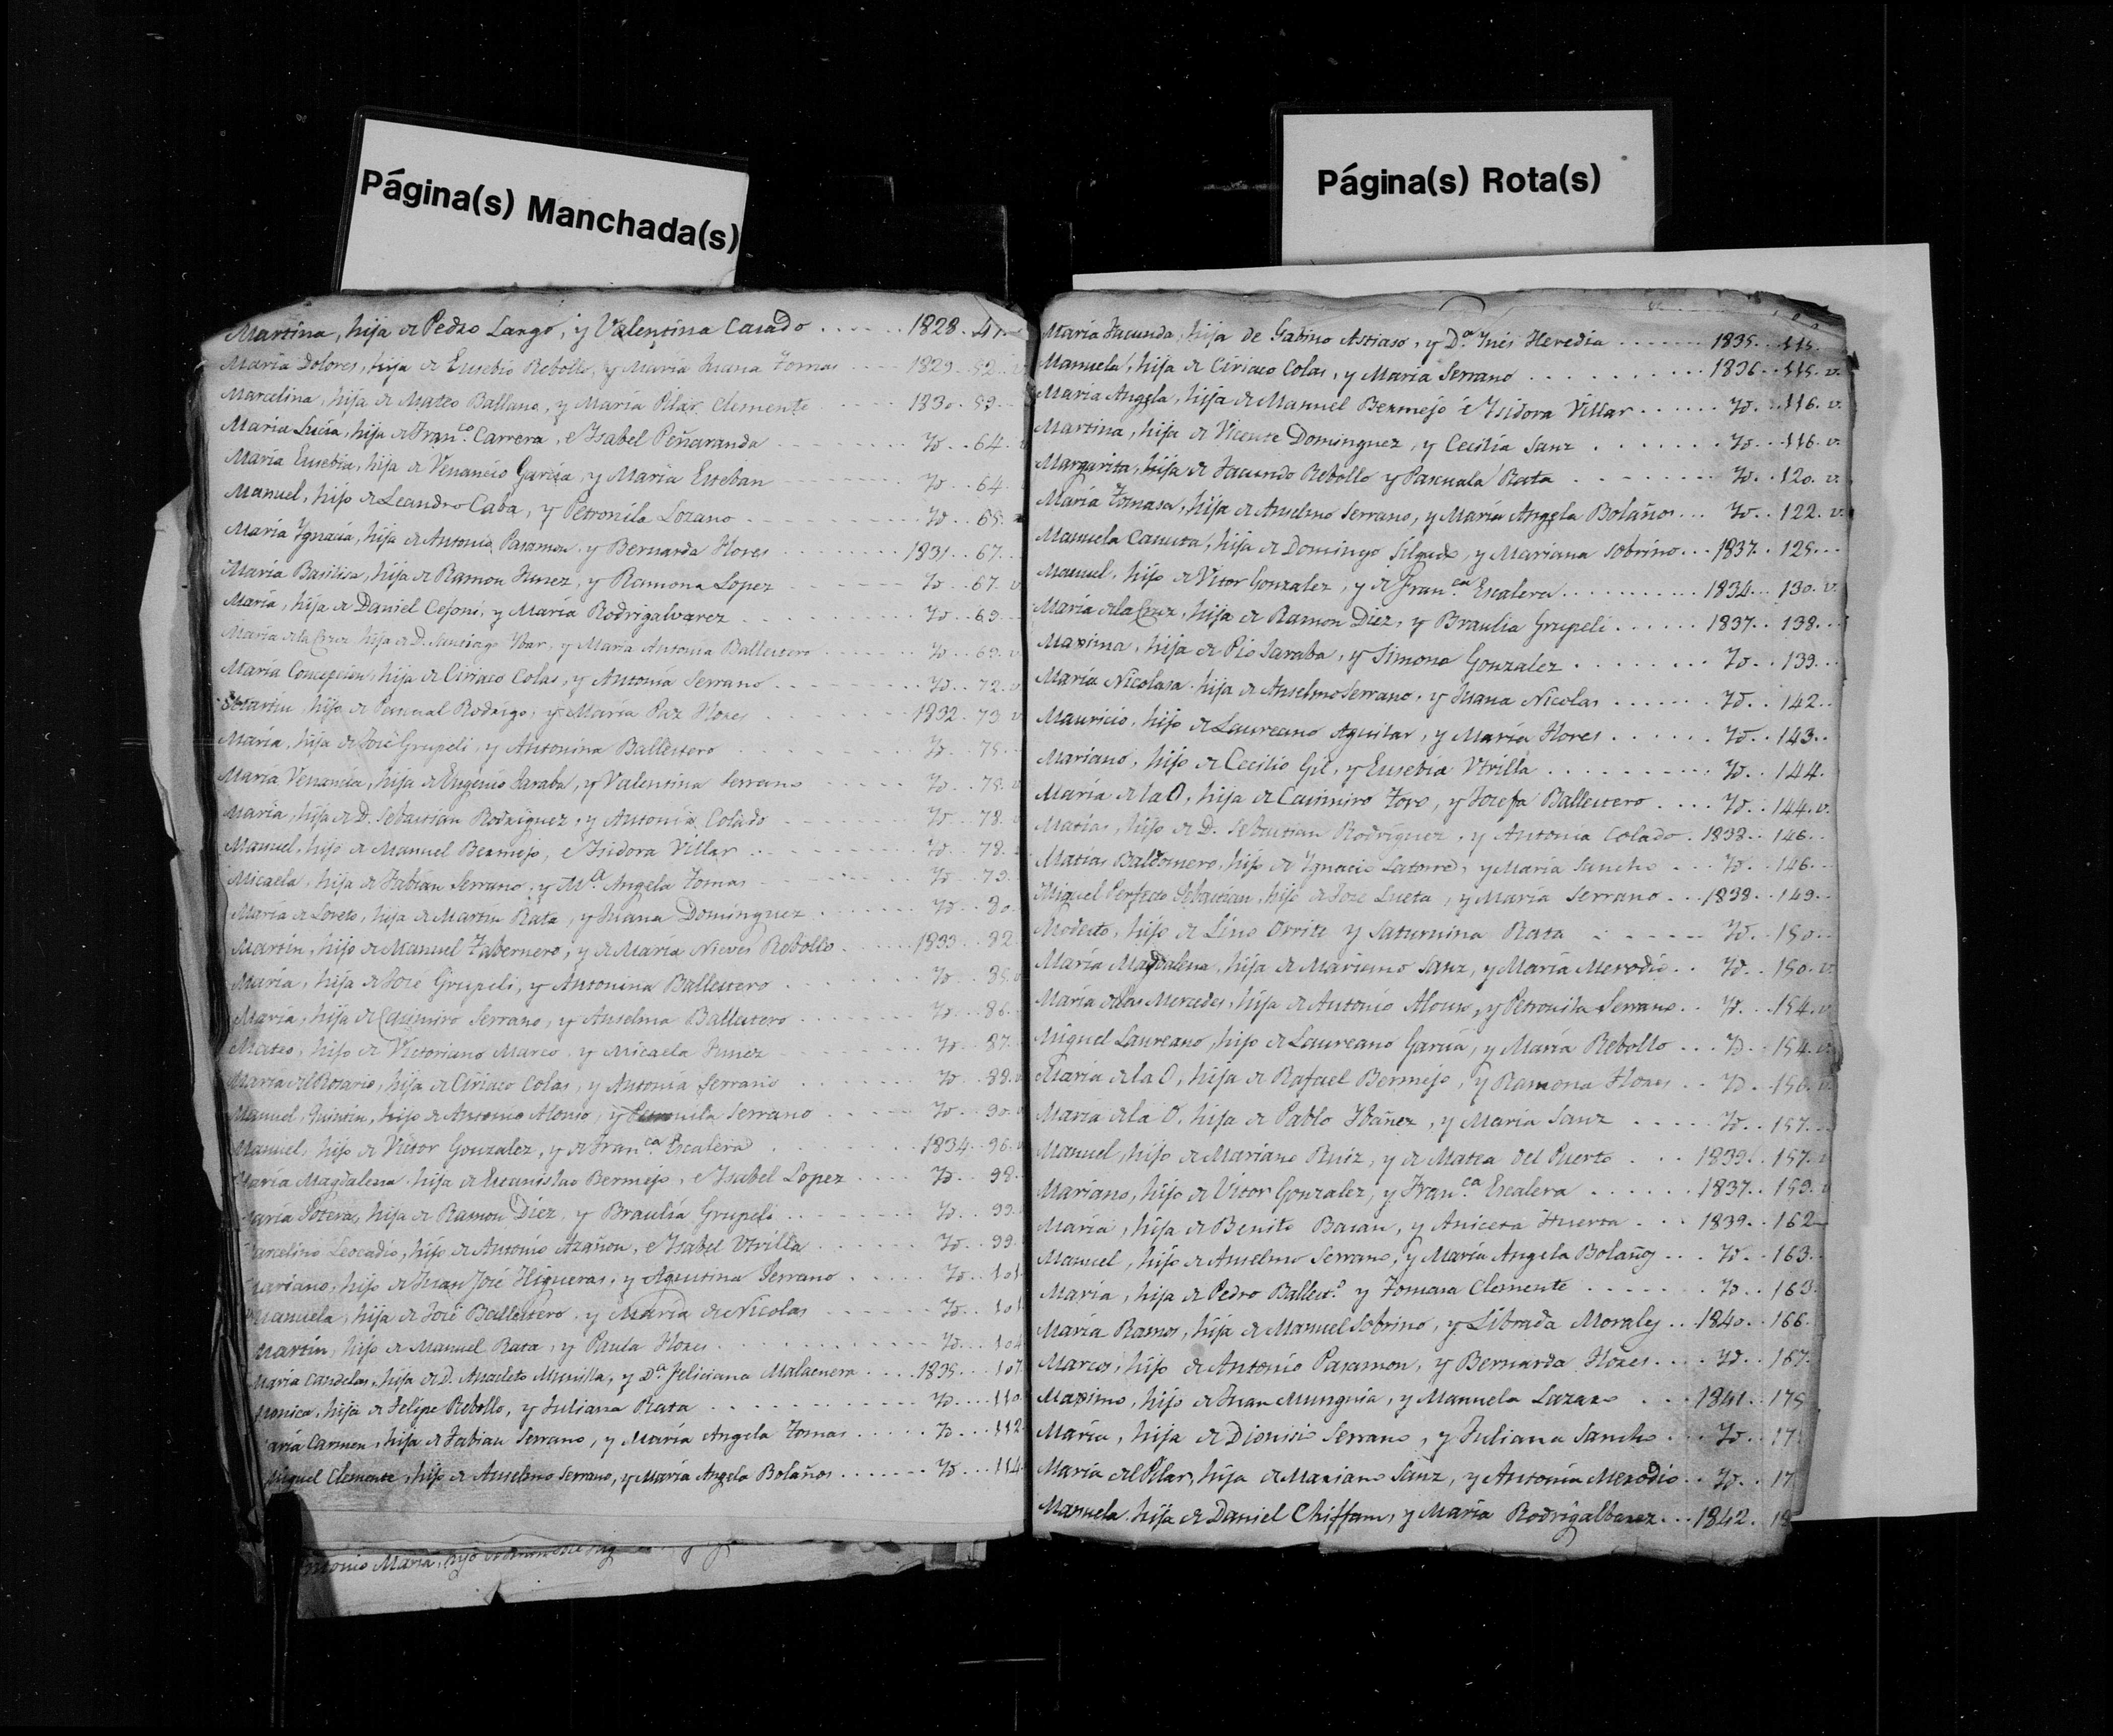 Página(s) Manchada(s)
Martina, hija de Pedro Largo, y Valentina Casado ...... 1828. 41.
María Dolores, hija de Eusebio Rebollo, y María Juana Tomas .... 1829. 52.
Marcelina, hija de Mateo Ballano, y María Pilar Clemente .... 1830. 59.
María Lucía, hija de Franco. Carrera, e Ysabel Peñaranda .... Yd. 64.
María Eusebia, hija de Venancio García, y María Esteban .... Yd. 64.
Manuel, hijo de Leandro Caba, y Petronila Lozano .... Yd. 65.
María Ygnacia, hija de Antonio Pasamon, y Bernarda Flores .... 1831. 67.
María Basilisa, hija de Ramon Junez, y Ramona Lopez .... Yd. 67. v
María, hija de Daniel y María Rodrigalvarez .... Yd. 69.
María de la Cruz, hija de D. Santiago Ybar, y María Antonia Ballestero .... Yd. 69. v
María Concepcion, hija de Ciriaco Colas, y Antonia Serrano .... Yd. 72. v
Martin, hijo de Pascual Rodrigo, y María Paz Flores .... 1832. 73. v
María, hija de José Grupeli, y Antonina Ballestero .... Yd. 75.
María Venancia, hija de Eugenio Saraba, y Valentina Serrano .... Yd. 75. v
María, hija de D. Sebastian Rodriguez, y Antonia Colado .... Yd. 78.
Manuel, hijo de Manuel Bermejo, e Ysidora Villar .... Yd. 78.
Micaela, hija de Fabian Serrano, y Ma. Angela Tomas .... Yd. 79.
María de Loreto, hija de Martin Rata, y Juana Dominguez .... Yd. 80.
Martin, hijo de Manuel Tabernero, y de María Nieves Rebollo .... 1833. 82.
María, hija de José Grupeli, y Antonina Ballestero .... Yd. 85.
María, hija de Casimiro Serrano, y Anselma Ballestero .... Yd. 86.
Mateo, hijo de Victoriano Marco, y Micaela Junez .... Yd. 87.
María del Rosario, hija de Ciriaco Colas, y Antonia Serrano .... Yd. 88.
Manuel Quintin, hijo de Antonio Alonso, y Petronila Serrano .... Yd. 90.
Manuel, hijo de Victor Gonzalez, y de Franca. Escalera .... 1834. 96.
María Magdalena, hija de Estanislao Bermejo, e Ysabel Lopez .... Yd. 98.
aría Sotera, hija de Ramon Diez, y Braulia Grupeli .... Yd. 99.
arcelino Leocadio, hijo de Antonio Azañon, e Ysabel Utrilla .... Yd. 99.
ariano, hijo de Juan José Higueras, y Agustina Serrano .... Yd. 101
Manuela, hija de José Ballestero, y María de Nicolas .... Yd. 101
Martin, hijo de Manuel Rata, y Paula Flores .... Yd. 104
María Candelas, hija de D. Anacleto Munilla, y Da. Feliciana Malaenera .... 1835. 107
Monica, hija de Felipe Rebollo, y Juliana Rata .... Yd. 110.
aría Carmen, hija de Fabian Serrano, y María Angela Tomas .... Yd. 112
Miguel Clemente, hijo de Anselmo Serrano, y María Angela Bolaños .... Yd. 114
Antonio María, hijo
Página(s) Rota(s)
María Facunda, hija de Gabino Astiaso, y Da. Ynés Heredia .... 1835. 115.
Manuela, hija de Ciriaco Colas, y María Serrano .... 1836. 115. v.
María Angela, hija de Manuel Bermejo é Ysidora Villar .... Yd. 116. v.
Martina, hija de Vicente Dominguez, y Cecilia Sanz .... Yd. 116. v.
Margarita, hija de Facundo Rebollo y Pascuala Rata .... Yd. 120. v.
María Tomasa, hija de Anselmo Serrano, y María Angela Bolaños ... Yd. 122. v.
Manuela Canuta, hija de Domingo Silgado, y Mariana Sobrino ... 1837. 125...
Manuel, hijo de Vitor Gonzalez, y de Franca. Escalera .... 1834. 130. v.
María de la Cruz, hija de Ramon Diez, y Braulia Grupeli .... 1837. 138...
Maxima, hija de Pio Saraba, y Simona Gonzalez .... Yd. 139...
María Nicolasa, hija de Anselmo Serrano, y Juana Nicolas .... Yd. 142..
Mauricio, hijo de Laureano Aguilar, y María Flores .... Yd. 143..
Mariano, hijo de Cecilio Gil, y Eusebia Utrilla .... Yd. 144.
María de la O, hija de Casimiro Toro, y Josefa Ballestero .... Yd. 144. v.
Matias, hijo de D. Sebastian Rodriguez, y Antonia Colado . 1838. 146..
Matías Baldomero, hijo de Ygnacio Latorre, y María Sancho .. Yd. 146.
Miguel Perfecto Sebastian, hijo de José Lueta, y María Serrano ... 1838. 149..
Modesto, hijo de Lino Orrite y Saturnina Rata .... Yd. 150..
María Magdalena, hija de Mariano Sanz, y María Merodio .. Yd. 150. v.
María de las Mercedes, hija de Antonio Alonso, y Petronila Serrano .. Yd. 154. v
Miguel Laureano, hijo de Laureano García, y María Rebollo ... Yd. 154. v.
María de la O, hija de Rafael Bermejo, y Ramona Flores .. Yd. 156. v.
María de la O, hija de Pablo Ybañez, y María Sanz .... Yd. 157...
Manuel, hijo de Mariano Ruiz, y de Matea del Puerto ... 1839. 157. v
Mariano, hijo de Vitor Gonzalez, y Franca. Escalera .... 1837. 159. v
María, hija de Benito Baran, y Aniceta Huerta ... 1839. 162
Manuel, hijo de Anselmo Serrano, y María Angela Bolaños ... Yd. 163.
María, hija de Pedro Ballesto. y Tomasa Clemente .... Yd. 163.
María Ramos, hija de Manuel Sobrino, y Librada Morales .. 1840. 166.
Marcos, hijo de Antonio Pasamon, y Bernarda Flores .... Yd. 167.
Maximo, hijo de Juan Munguia, y Manuela Lazaro ... 1841. 175
María, hija de Dionisio Serrano, y Juliana Sancho ... Yd. 17
María del Pilar, hija de Mariano Sanz, y Antonia Merodio .. Yd. 17
Manuela, hija de Daniel Chiffani, y María Rodrigalbarez ... 1842. 18